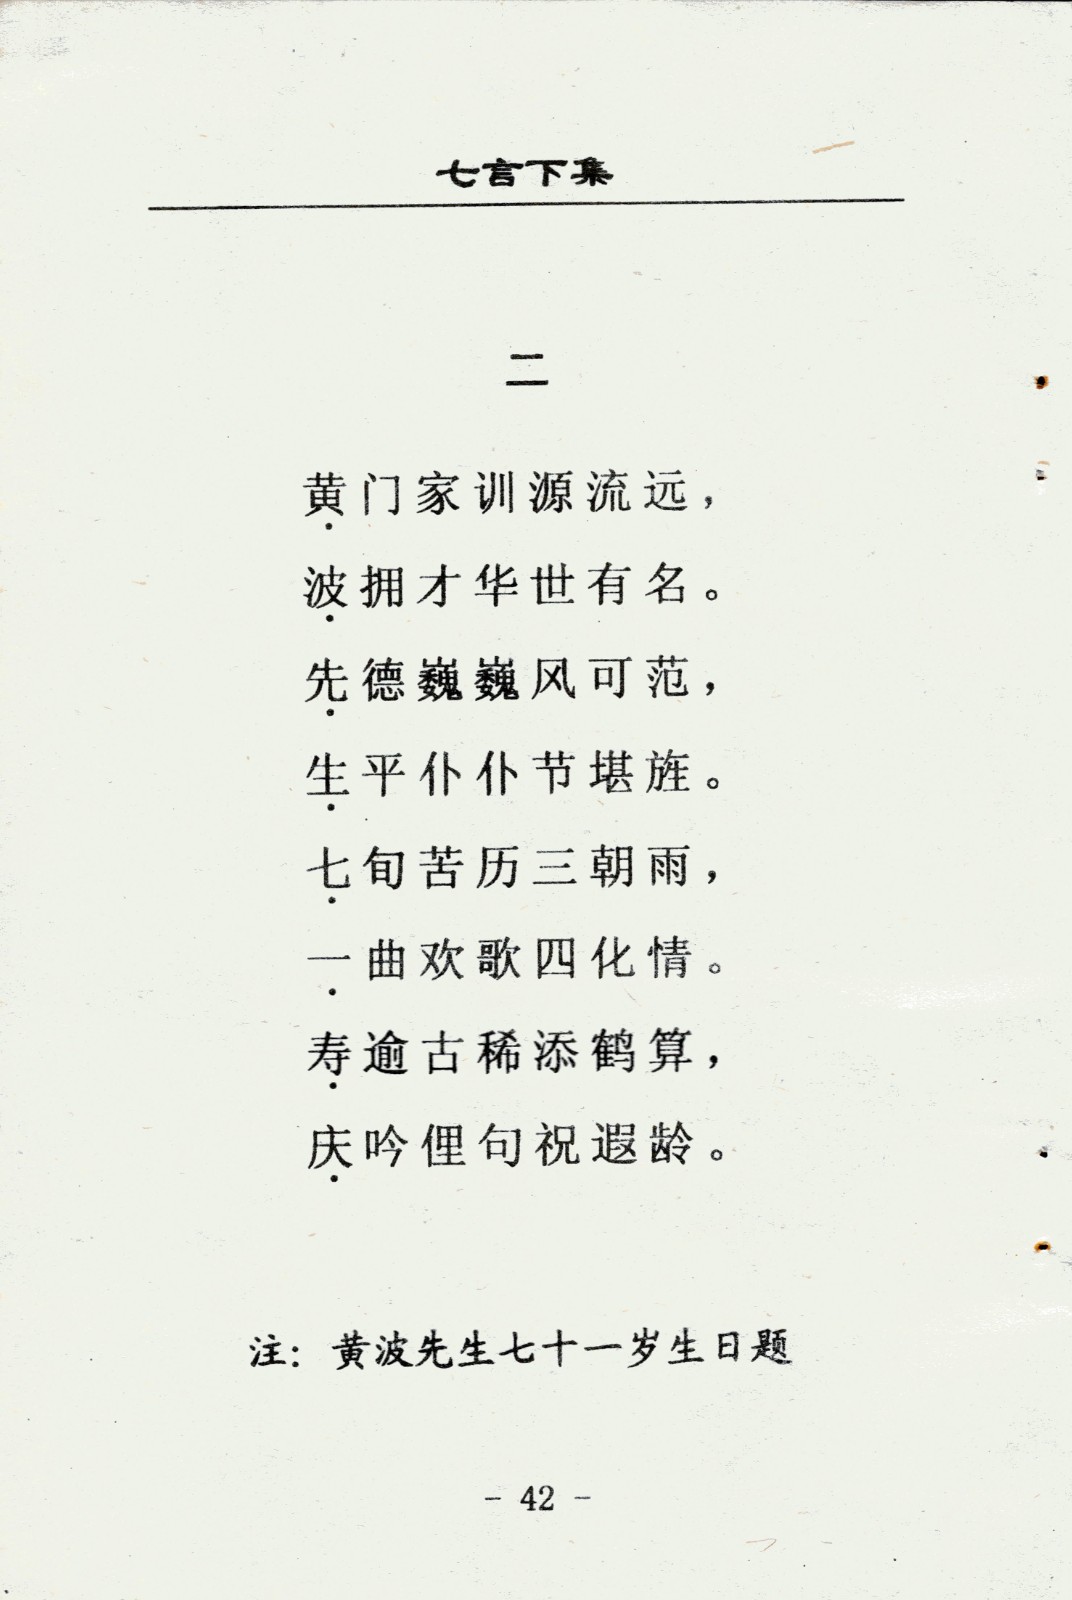 七言下集
二
黄门家训源流远，
波拥才华世有名。
先德巍巍风可范，
生平仆仆节堪旌。
七旬苦历三朝雨，
一曲欢歌四化情。
寿逾古稀添鹤算，
庆吟俚句祝遐龄。
注：黄波先生七十一岁生日题
- 42 -